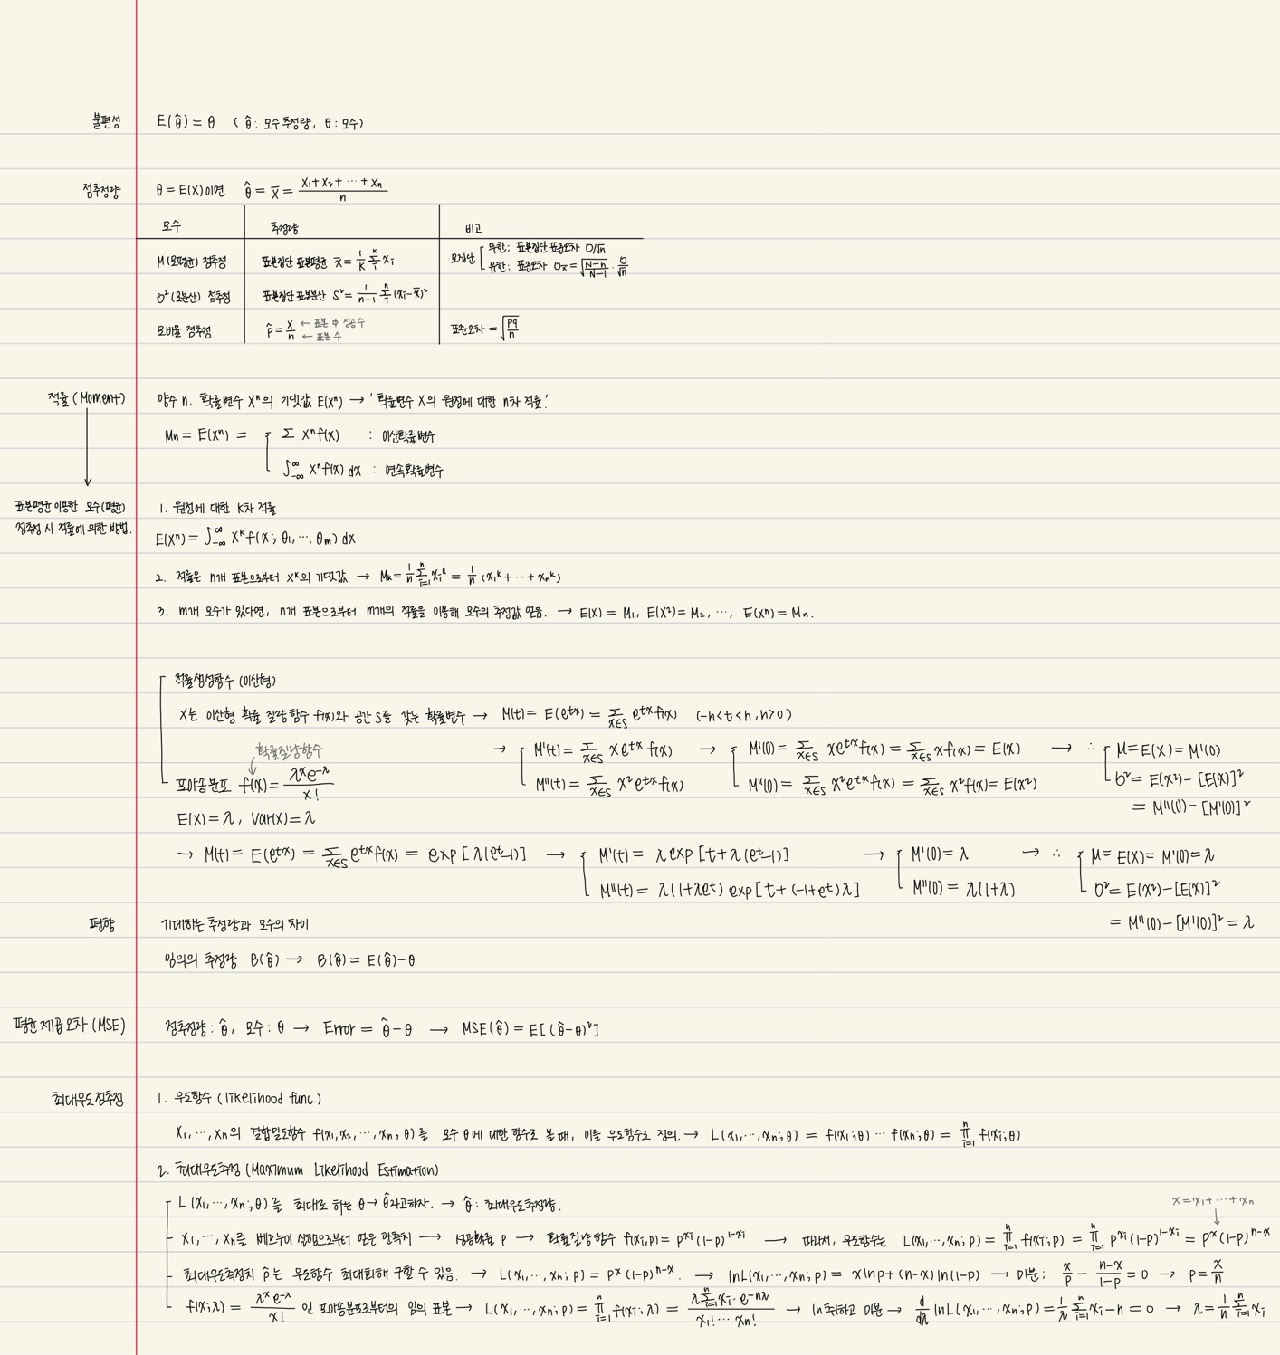 불편성 E(θ̂) = θ ( θ̂ : 모수추정량, θ : 모수)
점추정량 θ = E(X)이면 θ̂ = x̄ = (x₁+x₂+ ⋯ + xₙ)/n
모수 추정량 비고
M(모평균) 점추정 표본집단 표본평균 x̄ = 1/K Σ xᵢ 모집단 무한 : 표본집단 표준오차 σ/√n
유한 : 표준오차 σx̄ = √((N-n)/(N-1)) · σ/√n
σ² (모분산) 점추정 표본집단 표본분산 S² = 1/(n-1) Σ (xᵢ-x̄)²
모비율 점추정 p̂ = x/n ← 표본 中 성공수 ← 표본 수 표준오차 = √(pq/n)
적률 (Moment) 양수 n. 확률변수 Xⁿ의 기댓값 E(Xⁿ) → '확률변수 X의 원점에 대한 n차 적률.'
Mₙ = E(Xⁿ) = Σ Xⁿf(x) : 이산확률변수
∫₋∞^∞ Xⁿf(x) dx : 연속확률변수
표본평균 이용한 모수(평균) 1. 원점에 대한 K차 적률
점추정 시 적률에 의한 방법. E(Xⁿ) = ∫₋∞^∞ Xᵏ f(x ; θ₁, ⋯, θₘ) dx
2. 적률은 n개 표본으로부터 Xᵏ의 기댓값 → Mₖ = 1/n Σᵢ₌₁ⁿ xᵢᵏ = 1/n (x₁ᵏ + ⋯ + xₙᵏ)
3 m개 모수가 있다면, n개 표본으로부터 m개의 적률을 이용해 모수의 추정값 얻음. → E(X) = M₁, E(X²) = M₂, ⋯, E(Xⁿ) = Mₙ.
적률생성함수 (이산형)
X는 이산형 확률 질량함수 f(x)와 공간 S를 갖는 확률변수 → M(t) = E(eᵗˣ) = Σ_{x∈S} eᵗˣf(x) (-h<t<h, h>0)
→ M'(t) = Σ_{x∈S} xeᵗˣ f(x) → M'(0) = Σ_{x∈S} xeᵗˣf(x) = Σ_{x∈S} xf(x) = E(X) → ∴ μ = E(X) = M'(0)
M''(t) = Σ_{x∈S} x²eᵗˣf(x) M''(0) = Σ_{x∈S} x²eᵗˣf(x) = Σ_{x∈S} x²f(x) = E(X²) σ² = E(X²) - [E(X)]²
= M''(0) - [M'(0)]²
확률질량함수
포아송분포 f(x) = λˣe^-λ / x!
E(X) = λ, Var(X) = λ
→ M(t) = E(eᵗˣ) = Σ_{x∈S} eᵗˣf(x) = exp [λ(eᵗ-1)] → M'(t) = λ exp [t + λ(eᵗ-1)] → M'(0) = λ → ∴ μ = E(X) = M'(0) = λ
M''(t) = λ(1+λeᵗ) exp [t + (-1+eᵗ)λ] M''(0) = λ(1+λ) σ² = E(X²) - [E(X)]²
= M''(0) - [M'(0)]² = λ
편향 기대하는 추정량과 모수의 차이
임의의 추정량 B(θ̂) → B(θ̂) = E(θ̂) - θ
평균 제곱 오차 (MSE) 점추정량 : θ̂, 모수 : θ → Error = θ̂ - θ → MSE(θ̂) = E[(θ̂-θ)²]
최대우도점추정 1. 우도함수 (likelihood func.)
x₁, ⋯, xₙ의 결합밀도함수 f(x₁, x₂, ⋯, xₙ ; θ)를 모수 θ에 대한 함수로 볼 때, 이를 우도함수로 정의. → L(x₁, ⋯, xₙ ; θ) = f(x₁ ; θ) ⋯ f(xₙ ; θ) = Πᵢ₌₁ⁿ f(xᵢ ; θ)
2. 최대우도추정 (Maximum Likelihood Estimation)
L (x₁, ⋯, xₙ ; θ) 를 최대로 하는 θ → θ̂라고하자. → θ̂ : 최대우도추정량.
x = x₁ + ⋯ + xₙ
x₁, ⋯, xₙ를 베르누이 실험으로부터 얻은 관측치 → 성공확률 p → 확률질량 함수 f(x ; p) = p^xᵢ (1-p)^1-xᵢ → 따라서, 우도함수는 L(x₁, ⋯, xₙ ; p) = Πᵢ₌₁ⁿ f(xᵢ ; p) = Πᵢ₌₁ⁿ p^xᵢ (1-p)^1-xᵢ = pˣ(1-p)ⁿ⁻ˣ
최대우도추정치 p̂는 우도함수 최대화해 구할 수 있음. → L(x₁, ⋯, xₙ ; p) = pˣ (1-p)ⁿ⁻ˣ. → lnL(x₁, ⋯, xₙ ; p) = xlnp + (n-x) ln(1-p) → 미분 ; x/p - (n-x)/(1-p) = 0 → p = x/n
f(x ; λ) = λˣ e^-λ / x! 인 포아송분포로부터의 임의 표본 → L(x₁, ⋯, xₙ ; p) = Πᵢ₌₁ⁿ f(xᵢ ; λ) = λ^Σᵢ₌₁ⁿ xᵢ · e^-nλ / x₁! ⋯ xₙ! → ln 취하고 미분 → d/dλ lnL(x₁, ⋯, xₙ ; p) = 1/λ Σᵢ₌₁ⁿ xᵢ - n = 0 → λ = 1/n Σᵢ₌₁ⁿ xᵢ